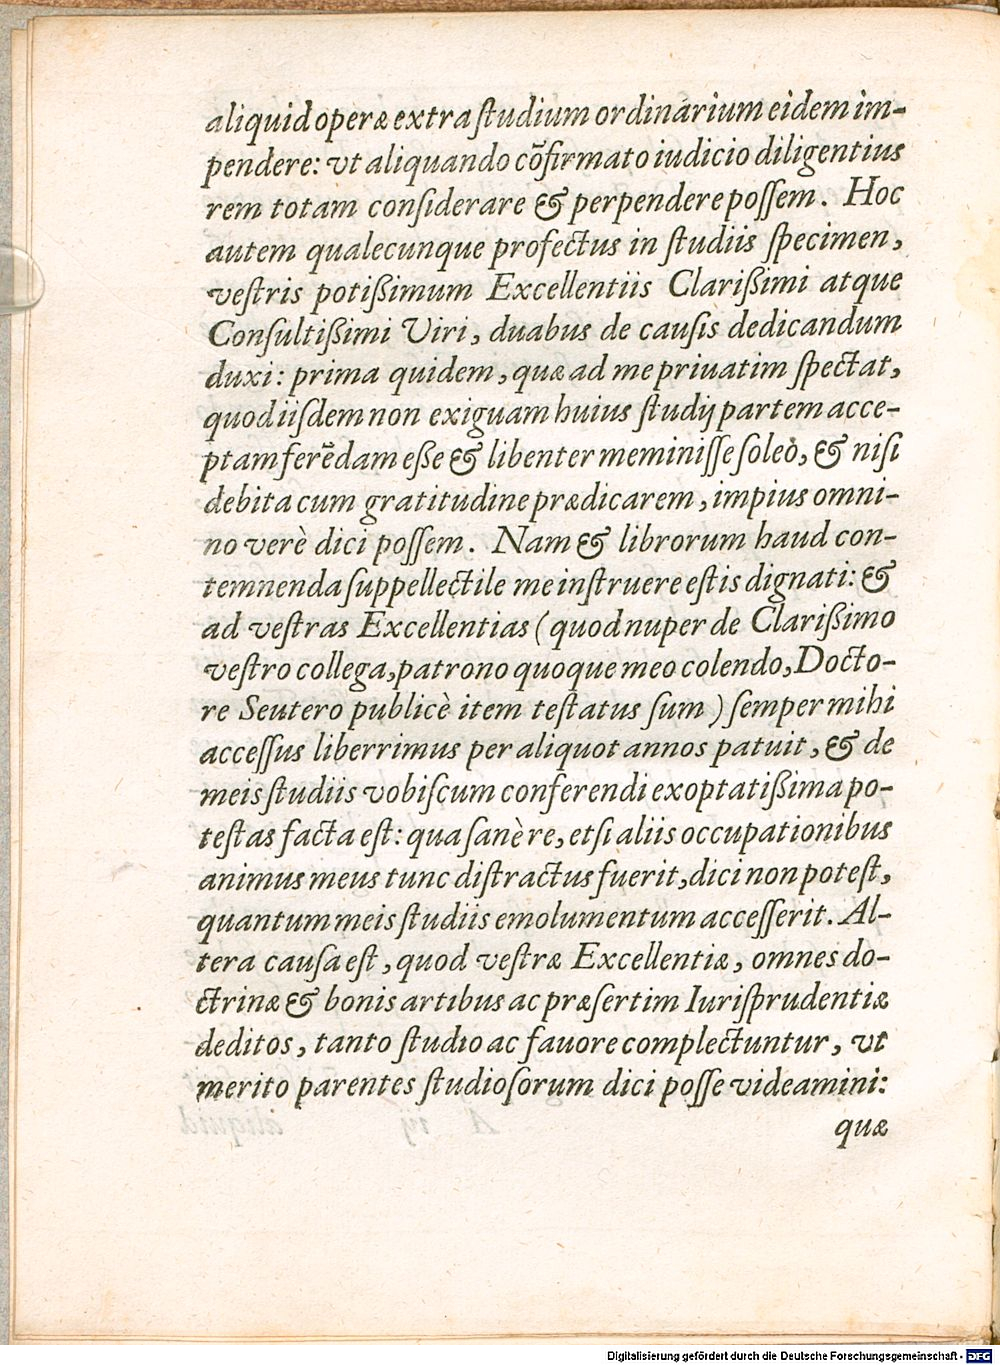 aliquid operæ extra ſtudium ordinarium eidem im-
pendere: vt aliquando cõfirmato iudicio diligentius
rem totam conſiderare & perpendere poſſem. Hoc
autem qualecunque profectus in ſtudiis ſpecimen,
veſtris potißimum Excellentiis Clarißimi atque
Conſultißimi Viri, duabus de cauſis dedicandum
duxi: prima quidem, quæ ad me priuatim ſpectat,
quod iiſdem non exiguam huius ſtudij partem acce-
ptam ferẽdam eße & libenter meminiſſe ſoleo, & niſi
debita cum gratitudine prædicarem, impius omni-
no verè dici poſſem. Nam & librorum haud con-
temnenda ſuppellectile me inſtruere eſtis dignati: &
ad veſtras Excellentias (quod nuper de Clarißimo
veſtro collega, patrono quoque meo colendo, Docto-
re Seutero publicè item teſtatus ſum) ſemper mihi
acceſſus liberrimus per aliquot annos patuit, & de
meis ſtudiis vobiſcum conferendi exoptatißima po-
teſtas facta eſt: qua ſanè re, etſi aliis occupationibus
animus meus tunc diſtractus fuerit, dici non poteſt,
quantum meis ſtudiis emolumentum acceſſerit. Al-
tera cauſa eſt, quod veſtræ Excellentiæ, omnes do-
ctrinæ & bonis artibus ac præſertim Iuriſprudentiæ
deditos, tanto ſtudio ac fauore complectuntur, vt
merito parentes ſtudioſorum dici poſſe videamini:
quæ
Digitalisierung gefördert durch die Deutsche Forschungsgemeinschaft - DFG